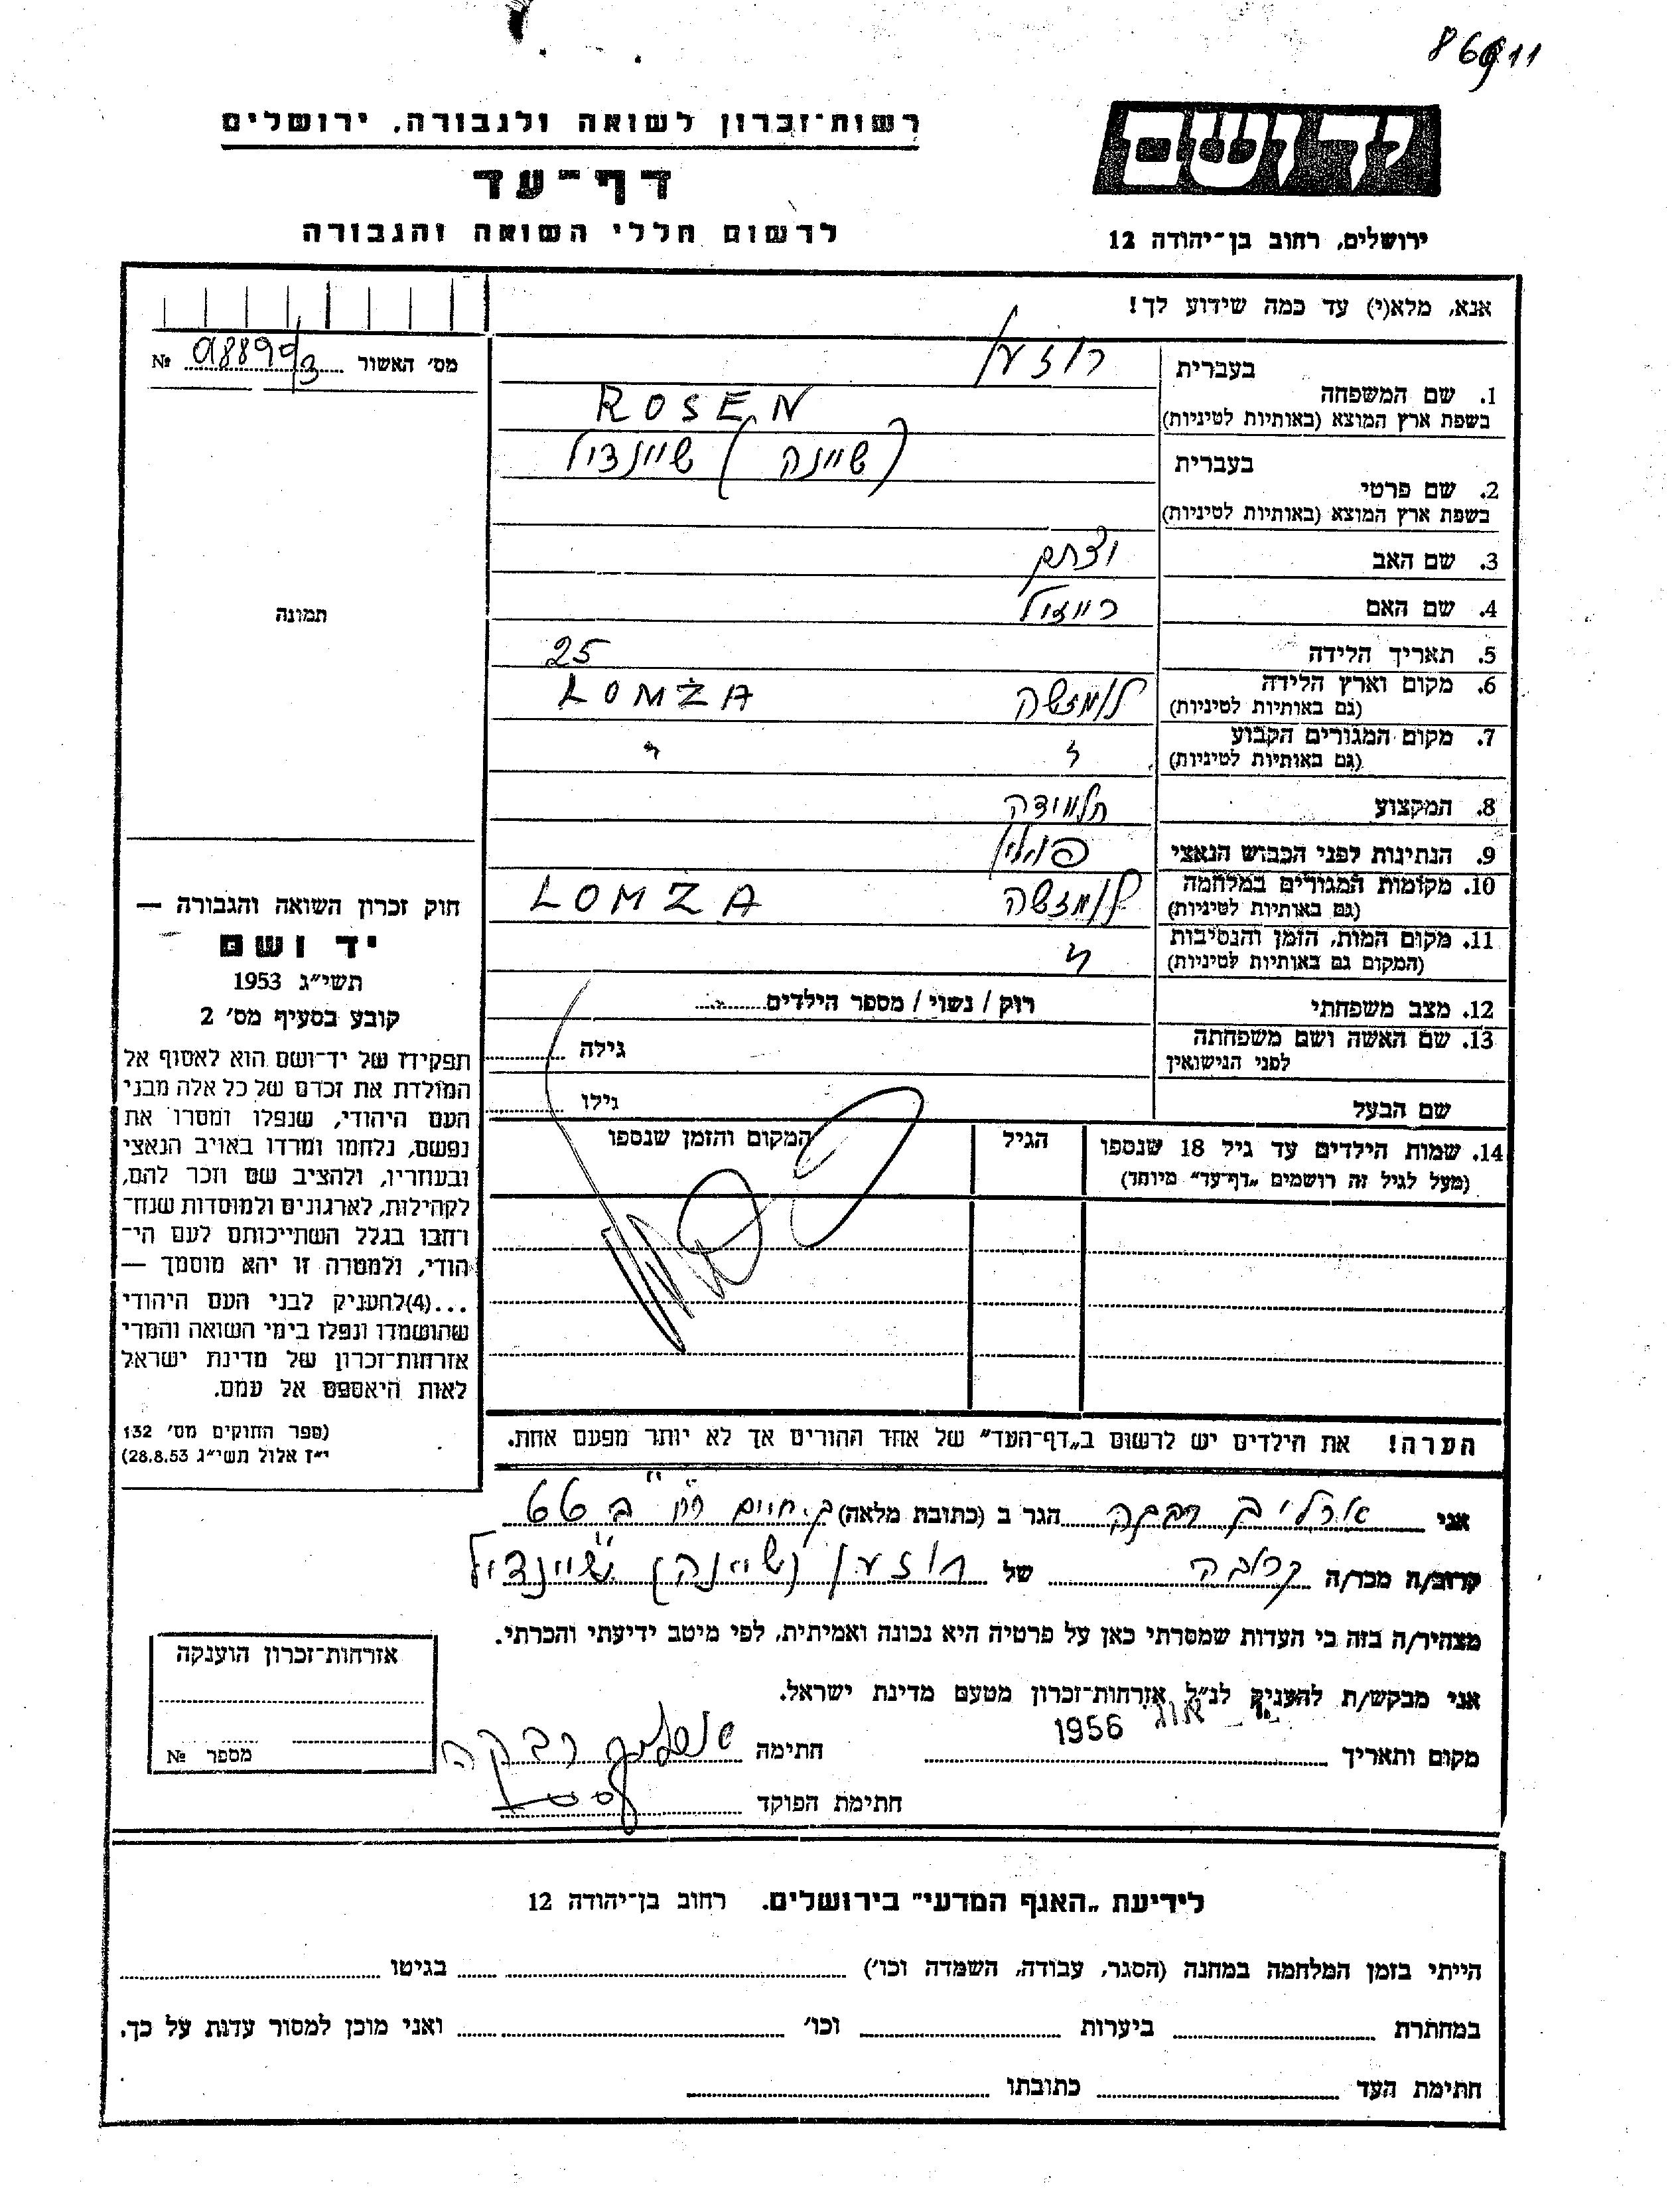 86911
רשות־זכרון לשואה ולגבורה, ירושלים
יד ושם
דף־עד
לרשום חללי השואה והגבורה
ירושלים, רחוב בן־יהודה 12
אנא, מלא(י) עד כמה שידוע לך!
מס׳ האשור № 98899/3
1. שם המשפחה בעברית רוזען
בשפת ארץ המוצא (באותיות לטיניות) ROSEN
2. שם פרטי בעברית (שיינה) שיינדיל
בשפת ארץ המוצא (באותיות לטיניות)
3. שם האב
4. שם האם רייזיל
5. תאריך הלידה 25
6. מקום וארץ הלידה (גם באותיות לטיניות) לומזשה LOMŻA
7. מקום המגורים הקבוע (גם באותיות לטיניות) " "
8. המקצוע תלמידה
9. הנתינות לפני הכבוש הנאצי פולין
10. מקומות המגורים במלחמה (גם באותיות לטיניות) לומזשה LOMZA
11. מקום המות, הזמן והנסיבות (המקום גם באותיות לטיניות) "
12. מצב משפחתי רוק / נשוי / מספר הילדים
13. שם האשה ושם משפחתה לפני הנישואין גילה
שם הבעל גילו
14. שמות הילדים עד גיל 18 שנספו (מעל לגיל זה רושמים „דף־עד" מיוחד)
הגיל
המקום והזמן שנספו
תמונה
חוק זכרון השואה והגבורה —
יד ושם
תשי״ג 1953
קובע בסעיף מס׳ 2
תפקידו של יד־ושם הוא לאסוף אל
המולדת את זכרם של כל אלה מבני
העם היהודי, שנפלו ומסרו את
נפשם, נלחמו ומרדו באויב הנאצי
ובעוזריו, ולהציב שם וזכר להם,
לקהילות, לארגונים ולמוסדות שנח־
רחבו בגלל השתייכותם לעם הי־
הודי, ולמטרה זו יהא מוסמך —
...(4)להעניק לבני העם היהודי
שהושמדו ונפלו בימי השואה והמרי
אזרחות־זכרון של מדינת ישראל
לאות היאספם אל עמם.
(ספר החוקים מס׳ 132
י״ז אלול תשי״ג 28.8.53)
הערה! את הילדים יש לרשום ב„דף־העד" של אחד ההורים אך לא יותר מפעם אחת.
אני רבקה הגר ב (כתובת מלאה) ק. חיים
קרוב/ה מכר/ה קרובה של רוזען (שיינה) שיינדיל
מצהיר/ה בזה כי העדות שמסרתי כאן על פרטיה היא נכונה ואמיתית, לפי מיטב ידיעתי והכרתי.
אני מבקש/ת להעניק לנ״ל אזרחות־זכרון מטעם מדינת ישראל.
מקום ותאריך אוג 1956 חתימה רבקה
חתימת הפוקד
אזרחות־זכרון הוענקה
מספר №
לידיעת „האגף המדעי" בירושלים. רחוב בן־יהודה 12
הייתי בזמן המלחמה במחנה (הסגר, עבודה, השמדה וכו׳) בגיטו
במחתרת ביערות וכו׳ ואני מוכן למסור עדות על כך.
חתימת העד כתובתו